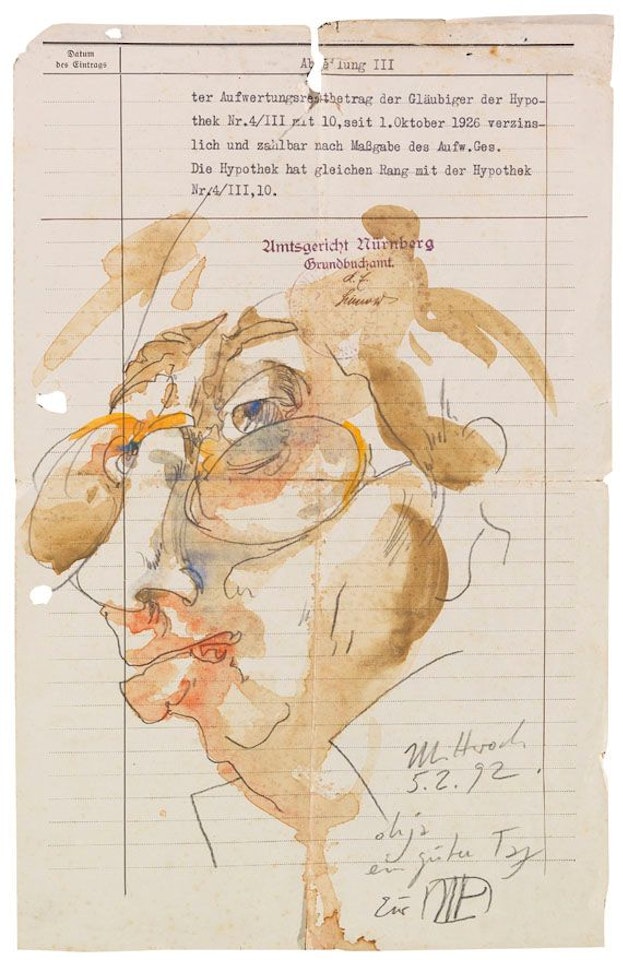 Datum
des Eintrags
Abteilung III
ter Aufwertungsrestbetrag der Gläubiger der Hypo-
thek Nr.4/III mit 10,seit 1.Oktober 1926 verzins-
lich und zahlbar nach Maßgabe des Aufw.Ges.
Die Hypothek hat gleichen Rang mit der Hypothek
Nr.4/III,10.
Amtsgericht Nürnberg
Grundbuchamt.
Mittwoch
5.2.92.
ohja
ein guter Tag